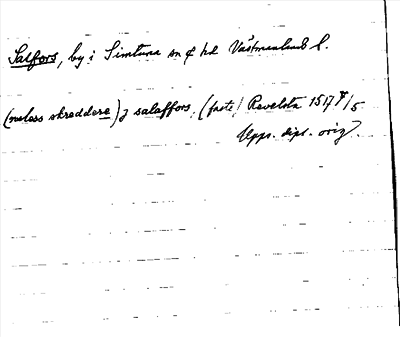 Salfors, by i Simtuna sn o hd Västmanlands l.
(moless skreddere) j salaffors, (faste) Ravelsta 1517 8/5
Upps. dipl. orig.